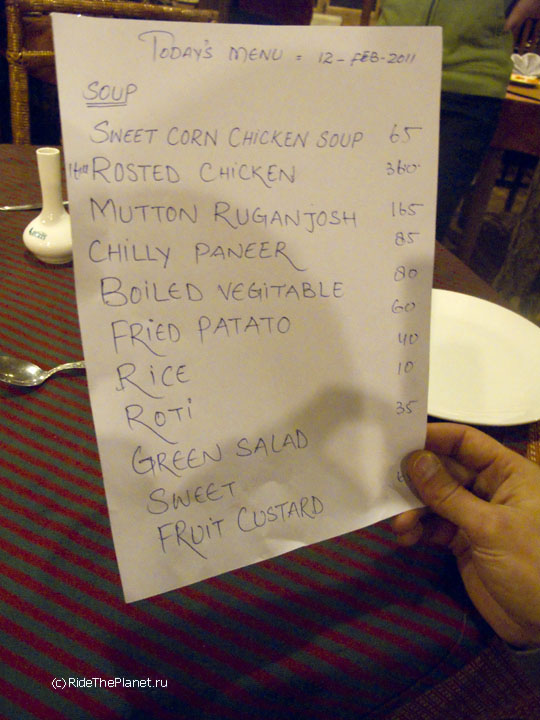 TODAY'S MENU = 12-FEB-2011
SOUP
SWEET CORN CHICKEN SOUP 65
ROSTED CHICKEN 360
MUTTON RUGANJOSH 165
CHILLY PANEER 85
BOILED VEGITABLE 80
FRIED PATATO 60
RICE 40
ROTI 10
GREEN SALAD 35
SWEET
FRUIT CUSTARD
(c)RideThePlanet.ru